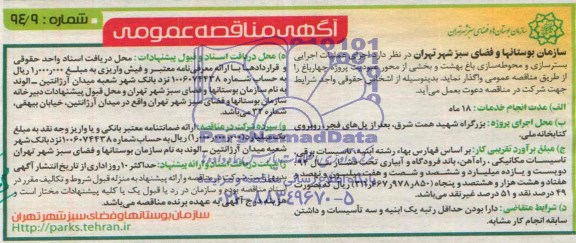 آگهی مناقصه عمومی
شماره: ۹۴/۹
سازمان بوستانها و فضای سبز شهر تهران
سازمان بوستانها و فضای سبز شهر تهران در نظر دارد اجرای عملیات اجرایی
بسترسازی و محوطه‌سازی باغ بهشت و بخشی از محور پروژه چهارباغ را
از طریق مناقصه عمومی واگذار نماید. بدینوسیله از اشخاص حقوقی واجد شرایط
جهت شرکت در مناقصه دعوت بعمل می‌آید.
الف) مدت انجام خدمات: ۱۸ ماه
ب) محل اجرای پروژه: بزرگراه شهید همت شرق، بعد از پل‌های فجر، روبروی
کتابخانه ملی.
ج) مبلغ برآورد تقریبی کار: بر اساس فهارس بهاء رشته ابنیه، تاسیسات برقی،
تاسیسات مکانیکی، راه، باند فرودگاه و آبیاری تحت
دویست و یازده میلیارد و ششصد و شصت و هفت میلیون و نهصد و
هفتاد و هشت هزار و هشتصد و پنجاه ریال که بصورت
۴۹ درصد نقد و ۵۱ درصد غیر نقد می‌باشد.
د) شرایط متقاضی: دارا بودن حداقل رتبه یک ابنیه و سه تأسیسات و داشتن
سابقه انجام کار مشابه.
ه) محل دریافت اسناد و قبول پیشنهادات: محل دریافت اسناد واحد حقوقی
و قراردادها با ارائه معرفی‌نامه معتبر و فیش واریزی به مبلغ ۱/۰۰۰/۰۰۰ ریال
به حساب شماره ۱۰۰۶۰۷۴۴۳۸ نزد بانک شهر شعبه میدان آرژانتین ـ الوند
به نام سازمان بوستانها و فضای سبز شهر تهران و محل قبول پیشنهادات دبیرخانه
سازمان بوستانها و فضای سبز شهر تهران واقع در میدان آرژانتین، خیابان بیهقی،
شماره ۳۲ می‌باشد.
و) سپرده شرکت در مناقصه: ارائه ضمانتنامه معتبر بانکی و یا واریز وجه نقد به مبلغ
ریال به حساب شماره ۱۰۰۶۰۷۴۴۳۸ نزد بانک شهر
شعبه میدان آرژانتین ـ الوند به نام سازمان بوستانها و فضای سبز شهر تهران
ارائه پیشنهاد: حداکثر ۱۰ روز اداری از تاریخ انتشار آگهی
ارائه پیشنهاد به منزله قبول شروط و تکالیف مقرر در
اسناد مناقصه بوده و سازمان در رد یا قبول یک یا کلیه پیشنهادات مختار است و
هزینه درج آگهی به عهده برنده مناقصه می‌باشد.
سازمان بوستانها و فضای سبز شهر تهران
Http://parks.tehran.ir
ParsNamadData
۰۲۱-۸۸۳۴۹۶۷۰-۵